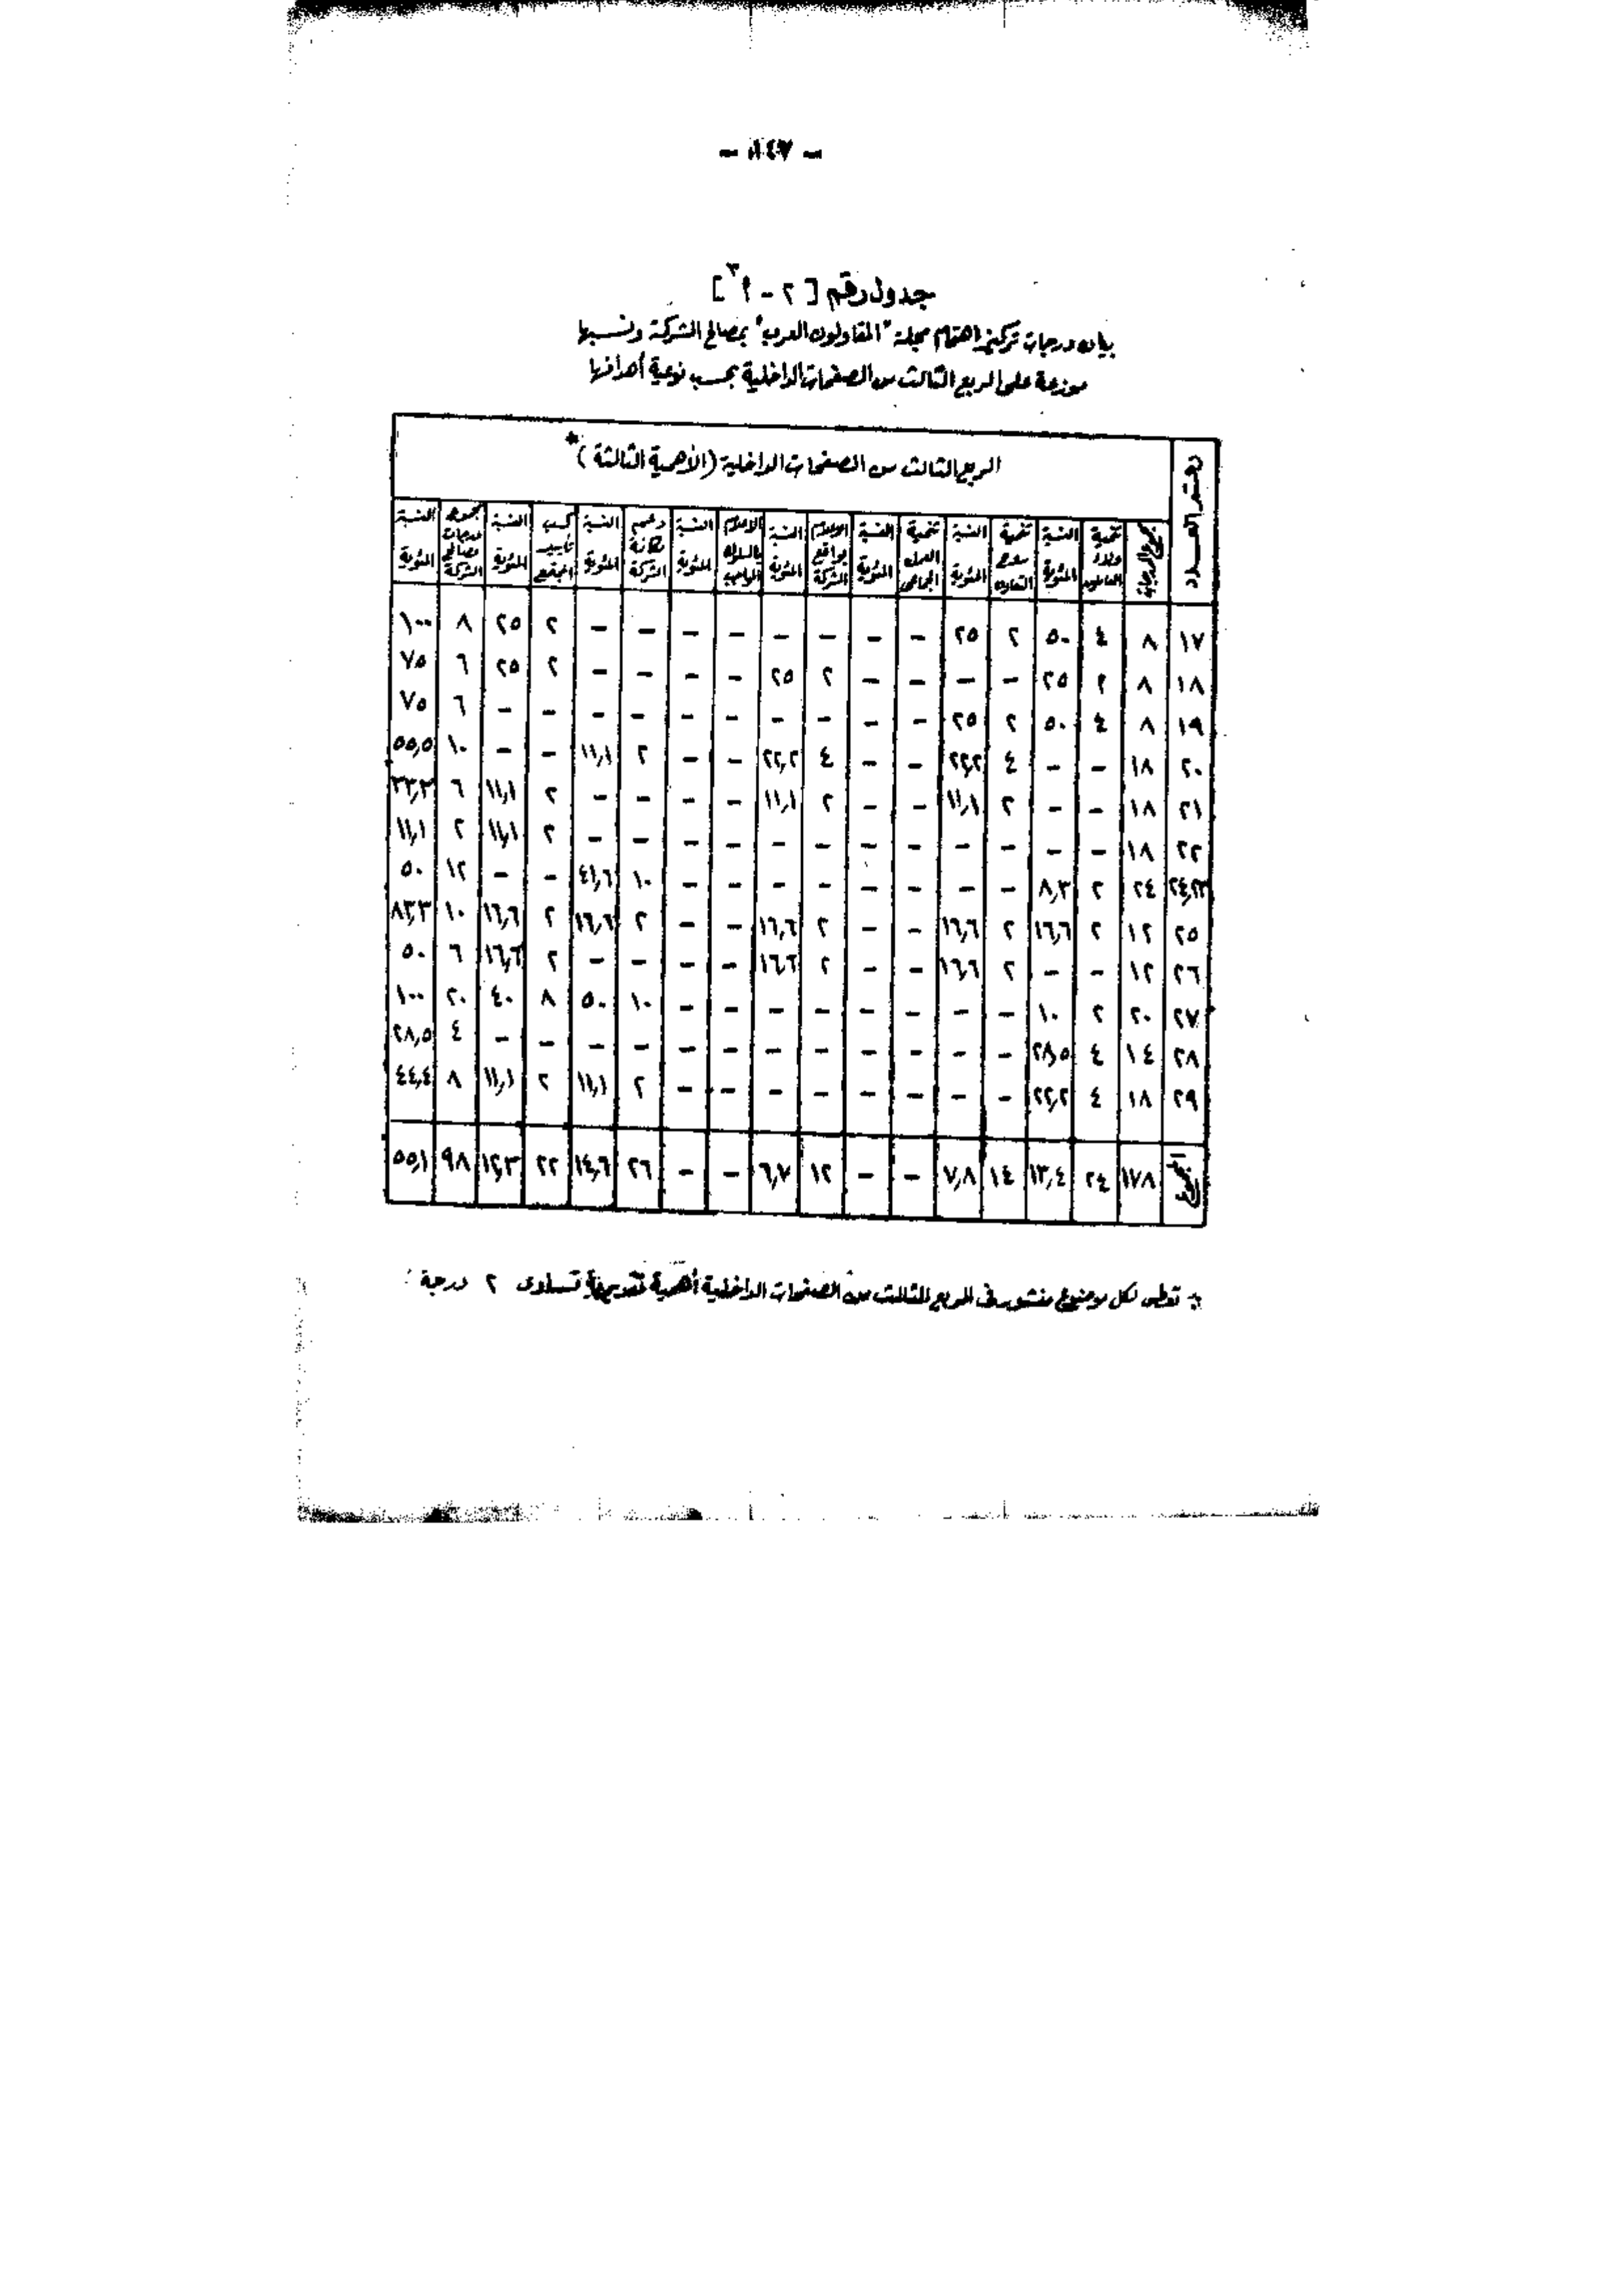 - ١٤٧ -
جدول رقم [ ٢ - ٣أ ]
بيان درجات تركيز اهتمام مجلة "المقاولون العرب" بمصالح الشركة ونسبها
موزعة على الربع الثالث من الصفحات الداخلية بحسب نوعية أهدافها
رقم العدد
الربع الثالث من الصفحات الداخلية (الأهمية الثالثة)*
مجموع الدرجات | تنمية ولاء العاملين | النسبة المئوية | تنمية روح التعاون | النسبة المئوية | تنمية العمل الجماعى | النسبة المئوية | الإعلام بواقع الشركة | النسبة المئوية | الإعلام بالسلوك الواجب | النسبة المئوية | دعم مكانة الشركة | النسبة المئوية | كسب تأييد المجتمع | النسبة المئوية | مجموع درجات مصالح الشركة | النسبة المئوية
١٧ ٨ ٤ ٥٠ ٢ ٢٥ - - - - - - - - ٢ ٢٥ ٨ ١٠٠
١٨ ٨ ٢ ٢٥ - - - - ٢ ٢٥ - - - - ٢ ٢٥ ٦ ٧٥
١٩ ٨ ٤ ٥٠ ٢ ٢٥ - - - - - - - - - - ٦ ٧٥
٢٠ ١٨ - - ٤ ٢٢,٢ - - ٤ ٢٢,٢ - - ٢ ١١,١ - - ١٠ ٥٥,٥
٢١ ١٨ - - ٢ ١١,١ - - ٢ ١١,١ - - - - ٢ ١١,١ ٦ ٣٣,٣
٢٢ ١٨ - - - - - - - - - - - - ٢ ١١,١ ٢ ١١,١
٢٤,٢٣ ٢٤ ٢ ٨,٣ - - - - - - - - ١٠ ٤١,٦ - - ١٢ ٥٠
٢٥ ١٢ ٢ ١٦,٦ ٢ ١٦,٦ - - ٢ ١٦,٦ - - ٢ ١٦,٦ ٢ ١٦,٦ ١٠ ٨٣,٣
٢٦ ١٢ - - ٢ ١٦,٦ - - ٢ ١٦,٦ - - - - ٢ ١٦,٦ ٦ ٥٠
٢٧ ٢٠ ٢ ١٠ - - - - - - - - ١٠ ٥٠ ٨ ٤٠ ٢٠ ١٠٠
٢٨ ١٤ ٤ ٢٨,٥ - - - - - - - - - - - - ٤ ٢٨,٥
٢٩ ١٨ ٤ ٢٢,٢ - - - - - - - - ٢ ١١,١ ٢ ١١,١ ٨ ٤٤,٤
المجموع ١٧٨ ٢٤ ١٣,٤ ١٤ ٧,٨ - - ١٢ ٦,٧ - - ٢٦ ١٤,٦ ٢٢ ١٢,٣ ٩٨ ٥٥,١
* تعطى لكل موضوع منشور فى الربع الثالث من الصفحات الداخلية أهمية تقديرية تساوى ٢ درجة